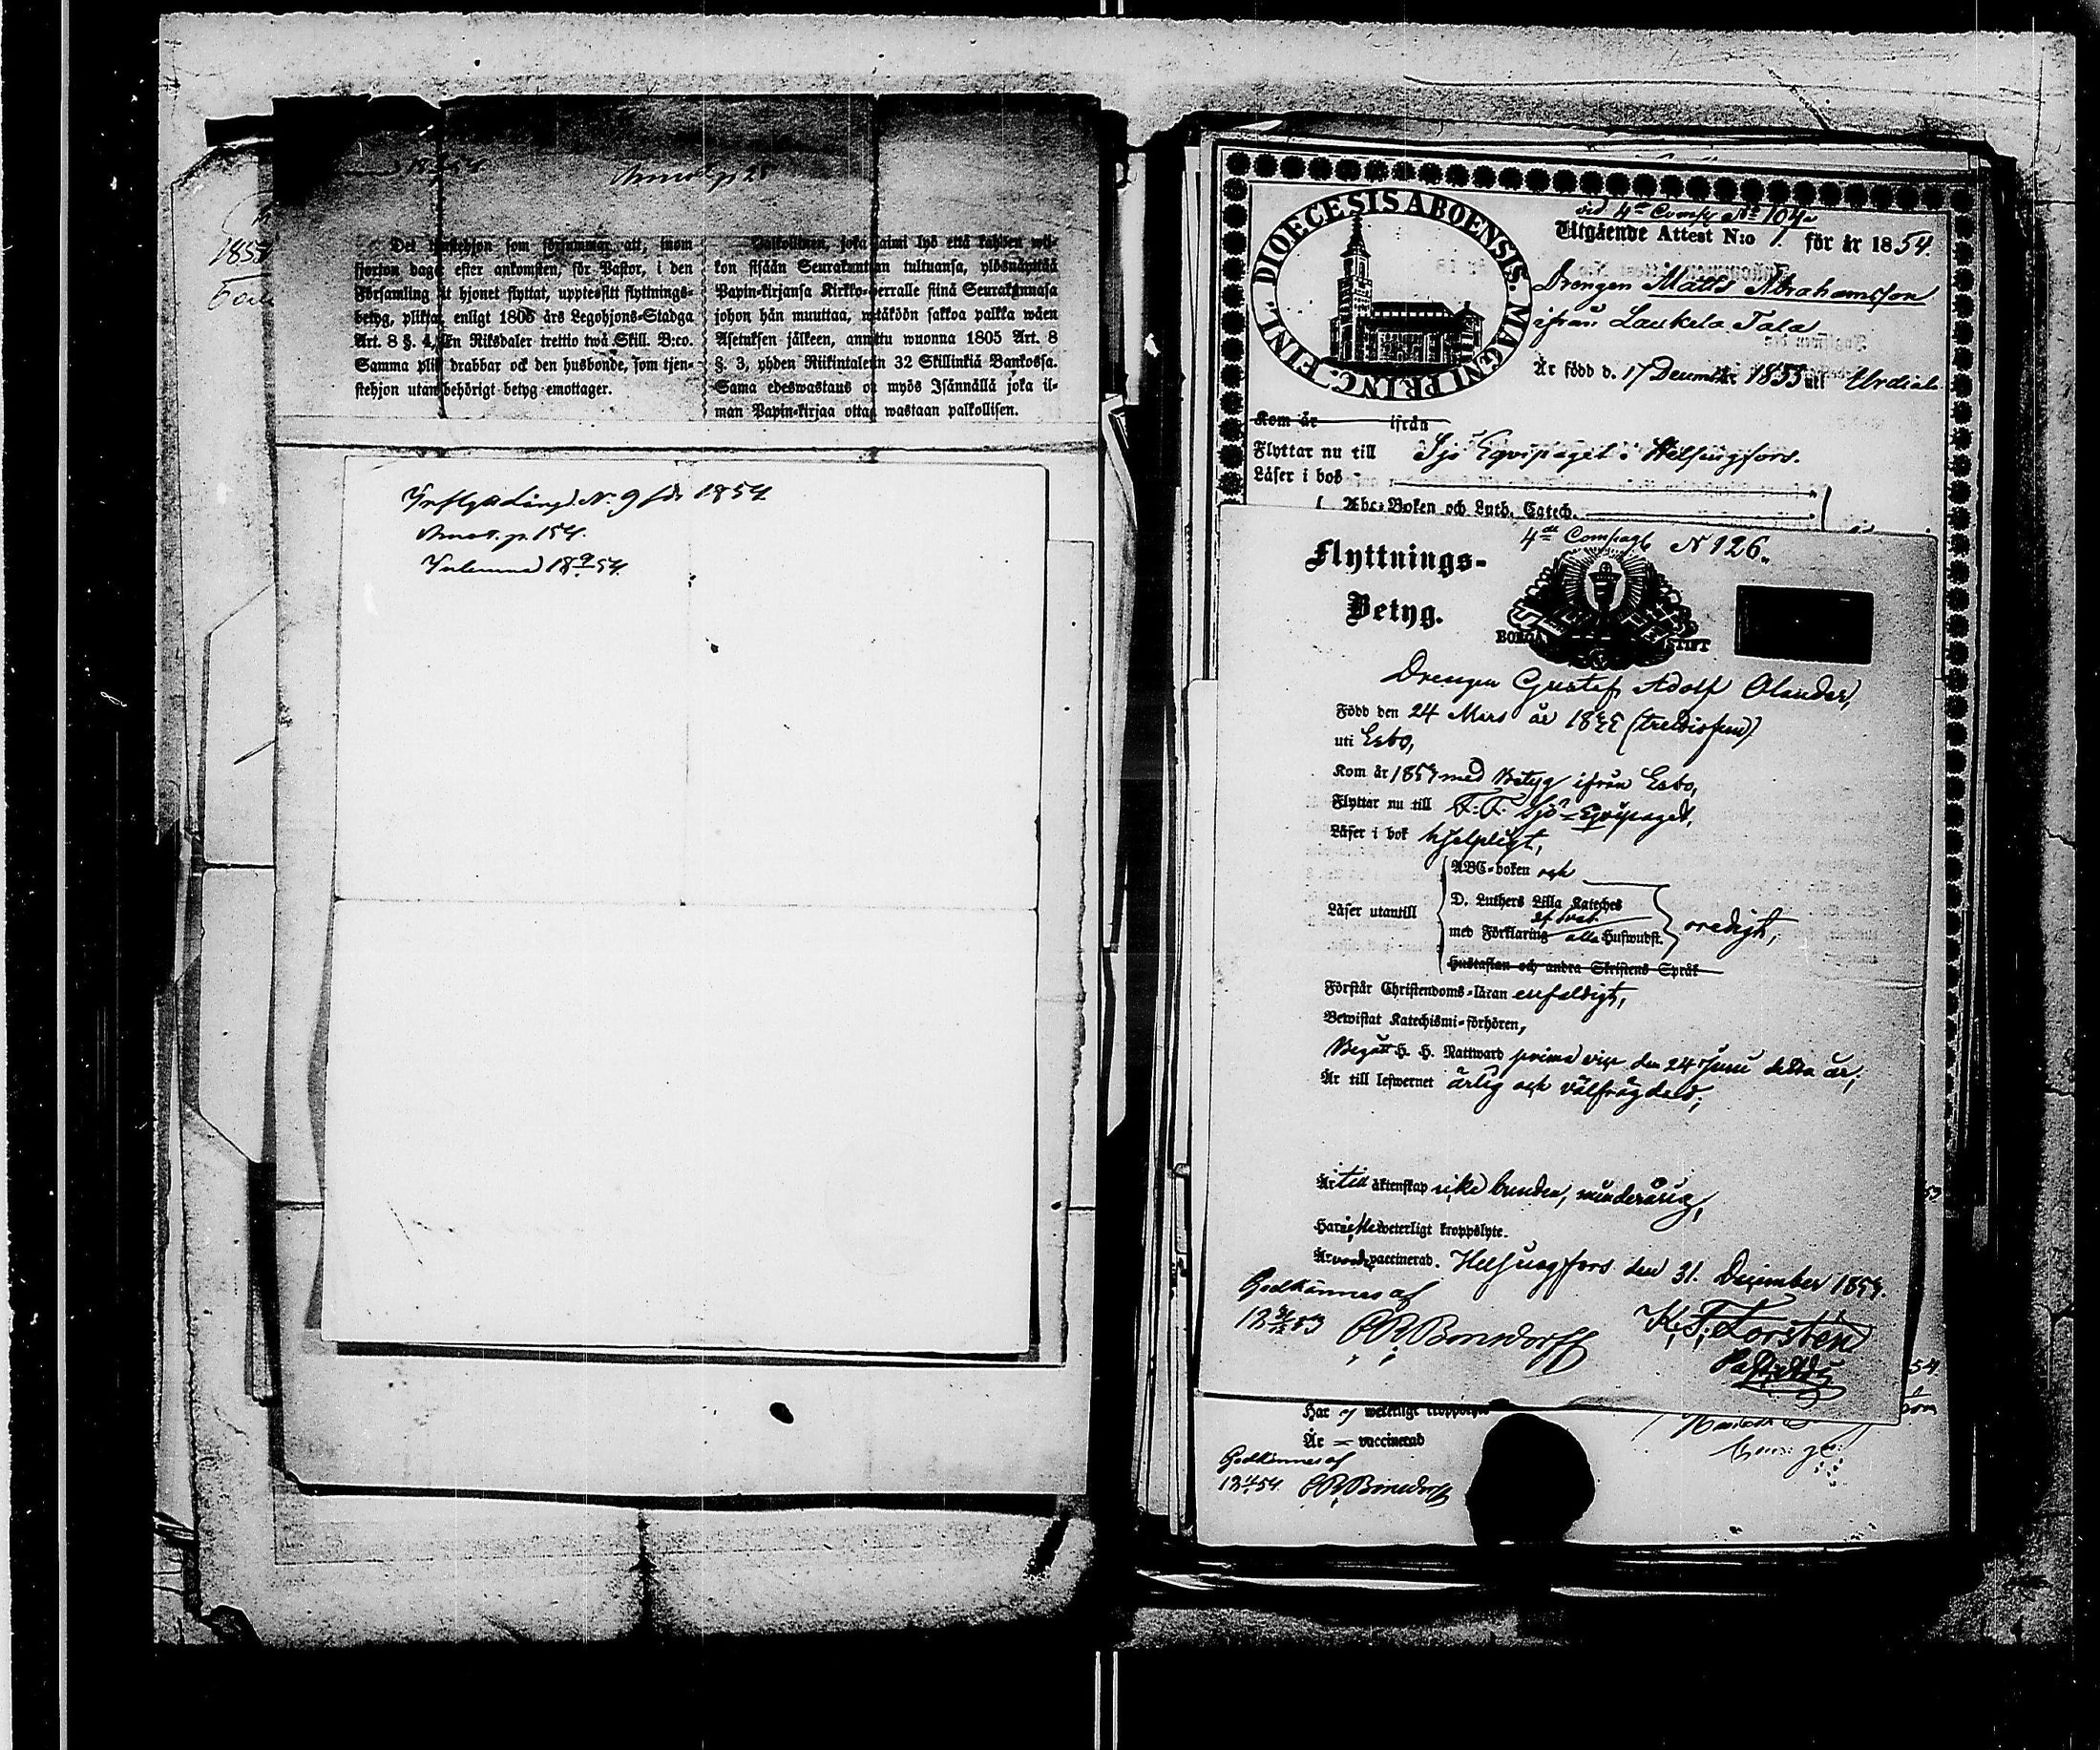 Annot. p 25
Det tjenstehjon som försummar att, inom
fjorton dagar efter ankomsten, för Pastor, i den
Församling dit hjonet flyttat, uppte sitt flyttnings-
betyg, plikte, enligt 1805 års Legohjons-Stadga
Art. 8 §. 4, En Riksdaler trettio twå Skill. B:co.
Samma plikt drabbar ock den husbonde, som tjen-
stehjon utan behörigt betyg emottager.
Palkollinen, joka laimi lyö että kahden wii-
kon sisään Seurakuntaan tultuansa, ylösnäyttää
Papin-kirjansa Kirkko-herralle siinä Seurakunnasa
johon hän muuttaa, wetäköön sakkoa palkka wäen
Asetuksen jälkeen, annettu wuonna 1805 Art. 8
§. 3, yhden Riikintalerin 32 Skillinkiä Bankossa.
Sama edeswastaus on myös Isännällä joka il-
man Papin-kirjaa ottaa wastaan palkollisen.
N:o 9 för 1854
Annot. p. 154.
DIOECESIS ABOENSIS. MAGNI PRINC. FINL.
4de Comp N:o 104
Utgående Attest N:o 1. för år 1854.
Drengen Matts Abrahamsson
ifrån Laukela Tala
Är född d. 17 December 1835 uti Urdiala
Kom år ifrån
Flyttar nu till Sjö Equipaget i Helsingfors.
Läser i bok
Abc-Boken och Luth. Catech.
4de Compagt N 126.
Flyttnings-
Betyg.
BORGÅ STIFT
Drengen Gustaf Adolf Olander,
Född den 24 Mars år 1835 (trettiofem)
uti Esbo,
Kom år 1853 med Betyg ifrån Esbo,
Flyttar nu till F. F. Sjö-Equipaget,
Läser i bok hjelpligt,
ABC-boken och
D. Luthers Lilla Kateches
Läser utantill
med Förklaring alla Huswudst. oredigt,
Hustaflan och andra Skriftens Språk
Förstår Christendoms-läran enfaldigt,
Bewistat Katechismi-förhören,
Begått H. H. Nattward prima vice den 24 Juni detta år,
Är till lefwernet ärlig och välfrägdad;
Är till äktenskap icke bunden, minderårig,
Har icke weterligt kroppslyte.
Är vaccinerad. Helsingfors den 31. December 1853.
Godkännes af
K. F. Forstén
Har ej weterligt kroppslyte
Är vaccinerad
Godkännes af